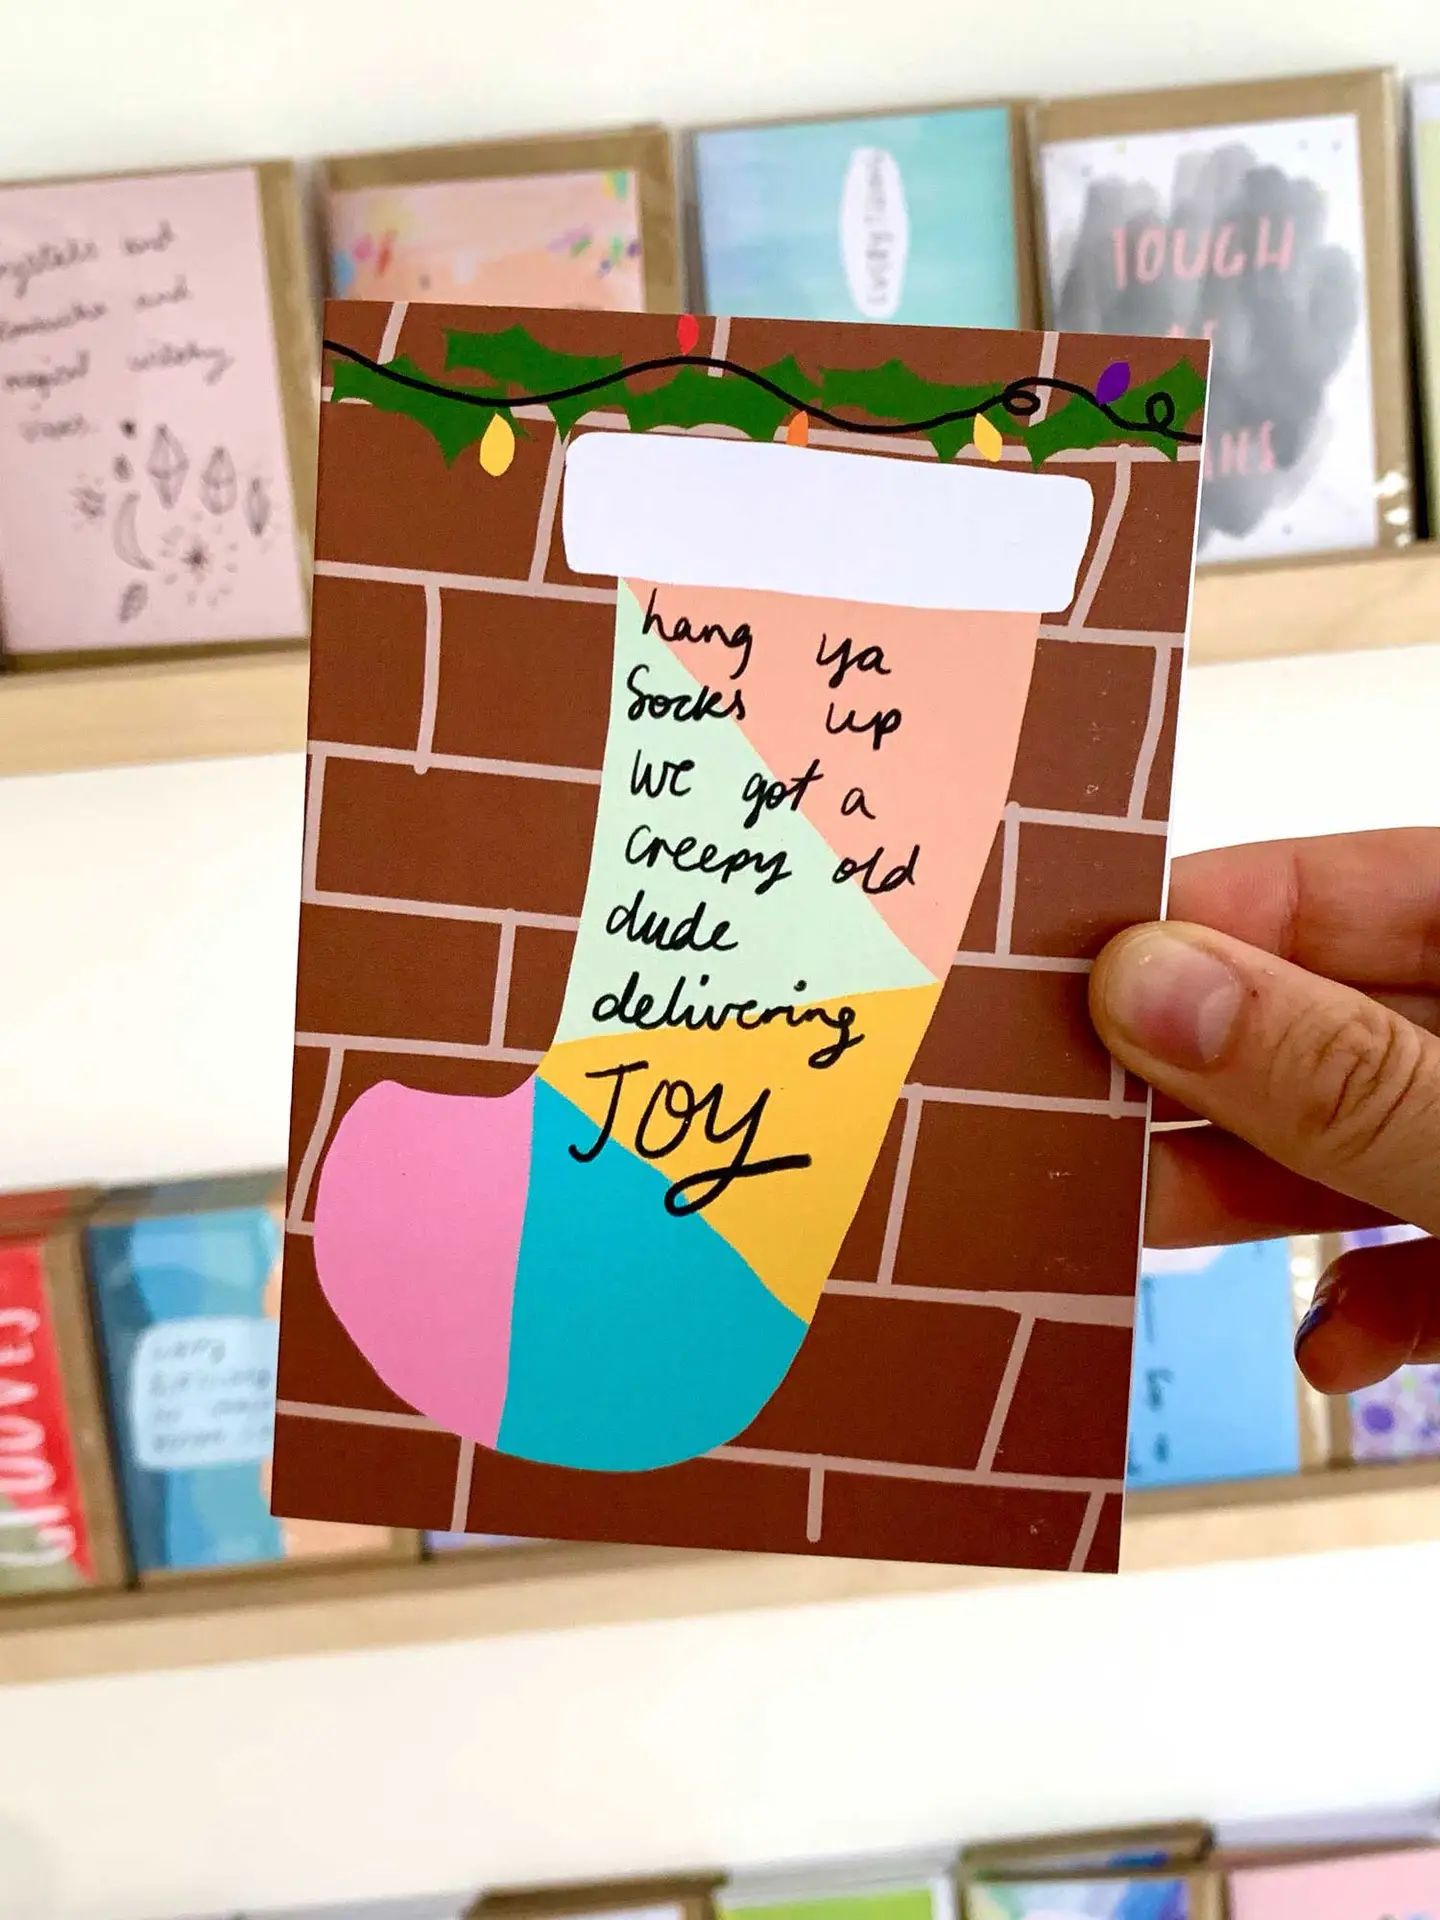 hang ya
Socks up
We got a
Creepy old
dude
delivering
Joy
crystals and
and
magical witchy
vibes
TOUGH
GROOVES